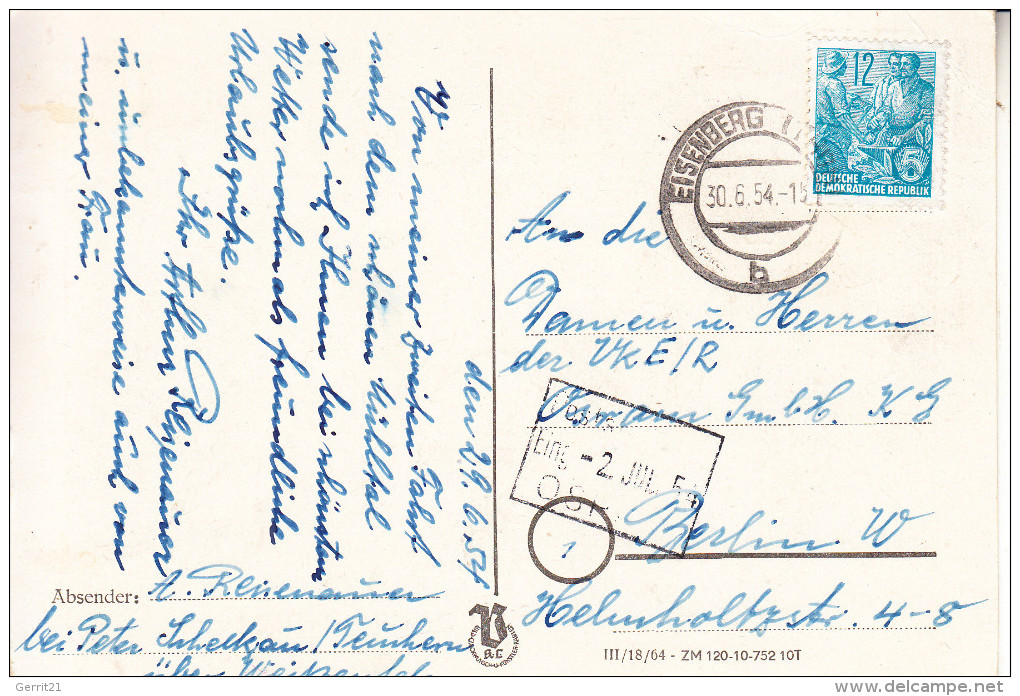 den 29.6.54
Von meiner zweiten Fahrt
nach dem schönen Mühltal
sende ich Ihnen bei schönsten
Wetter nochmals freundliche
Urlaubsgrüße.
Ihr Arthur Reisenauer
u. unbekannterweise auch von
meiner Frau.
Absender: A. Reisenauer
bei Peter Schelkau/Teuchern
über
12
5
DEUTSCHE
DEMOKRATISCHE REPUBLIK
EISENBERG
30.6.54.-15
b
An die
Damen u. Herren
der VkE/R
Osram G.m.b.H. KG
Eing. -2. JUL. 54
OSr
1
Berlin W
Helmholtzstr. 4-8
III/18/64 - ZM 120-10-752 10T
Gerrit21
delcampe.net